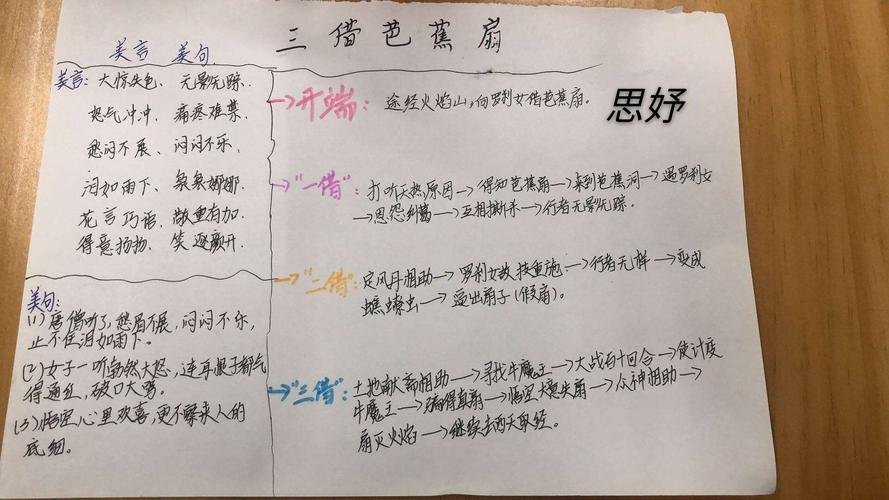 三借芭蕉扇
思妤
美言 美句
美言：大惊失色、无影无踪、
怒气冲冲、痛疼难禁、
愁闷不展、闷闷不乐、
泪如雨下、袅袅娜娜、
花言巧语、敬重有加、
得意扬扬、笑逐颜开、
美句：
(1)唐僧听了，愁眉不展，闷闷不乐，
止不住泪如雨下。
(2)女子一听勃然大怒，连耳根子都气
得通红，破口大骂。
(3)悟空心里欢喜，更不晓来人的
底细。
→开端：途经火焰山，向罗刹女借芭蕉扇。
→"一借"：打听天热原因→得知芭蕉扇→来到芭蕉洞→遇罗刹女
→恩怨纠葛→互相撕杀→行者无影无踪。
→"二借"：定风丹相助→罗刹女故技重施→行者无样→变成
蟭蟟虫→逼出扇子（假扇）。
→"三借"：土地献斋相助→寻找牛魔王→大战百十回合→使计变
牛魔王→骗得真扇→悟空大意失扇→众神相助→
扇灭火焰→继续去西天取经。